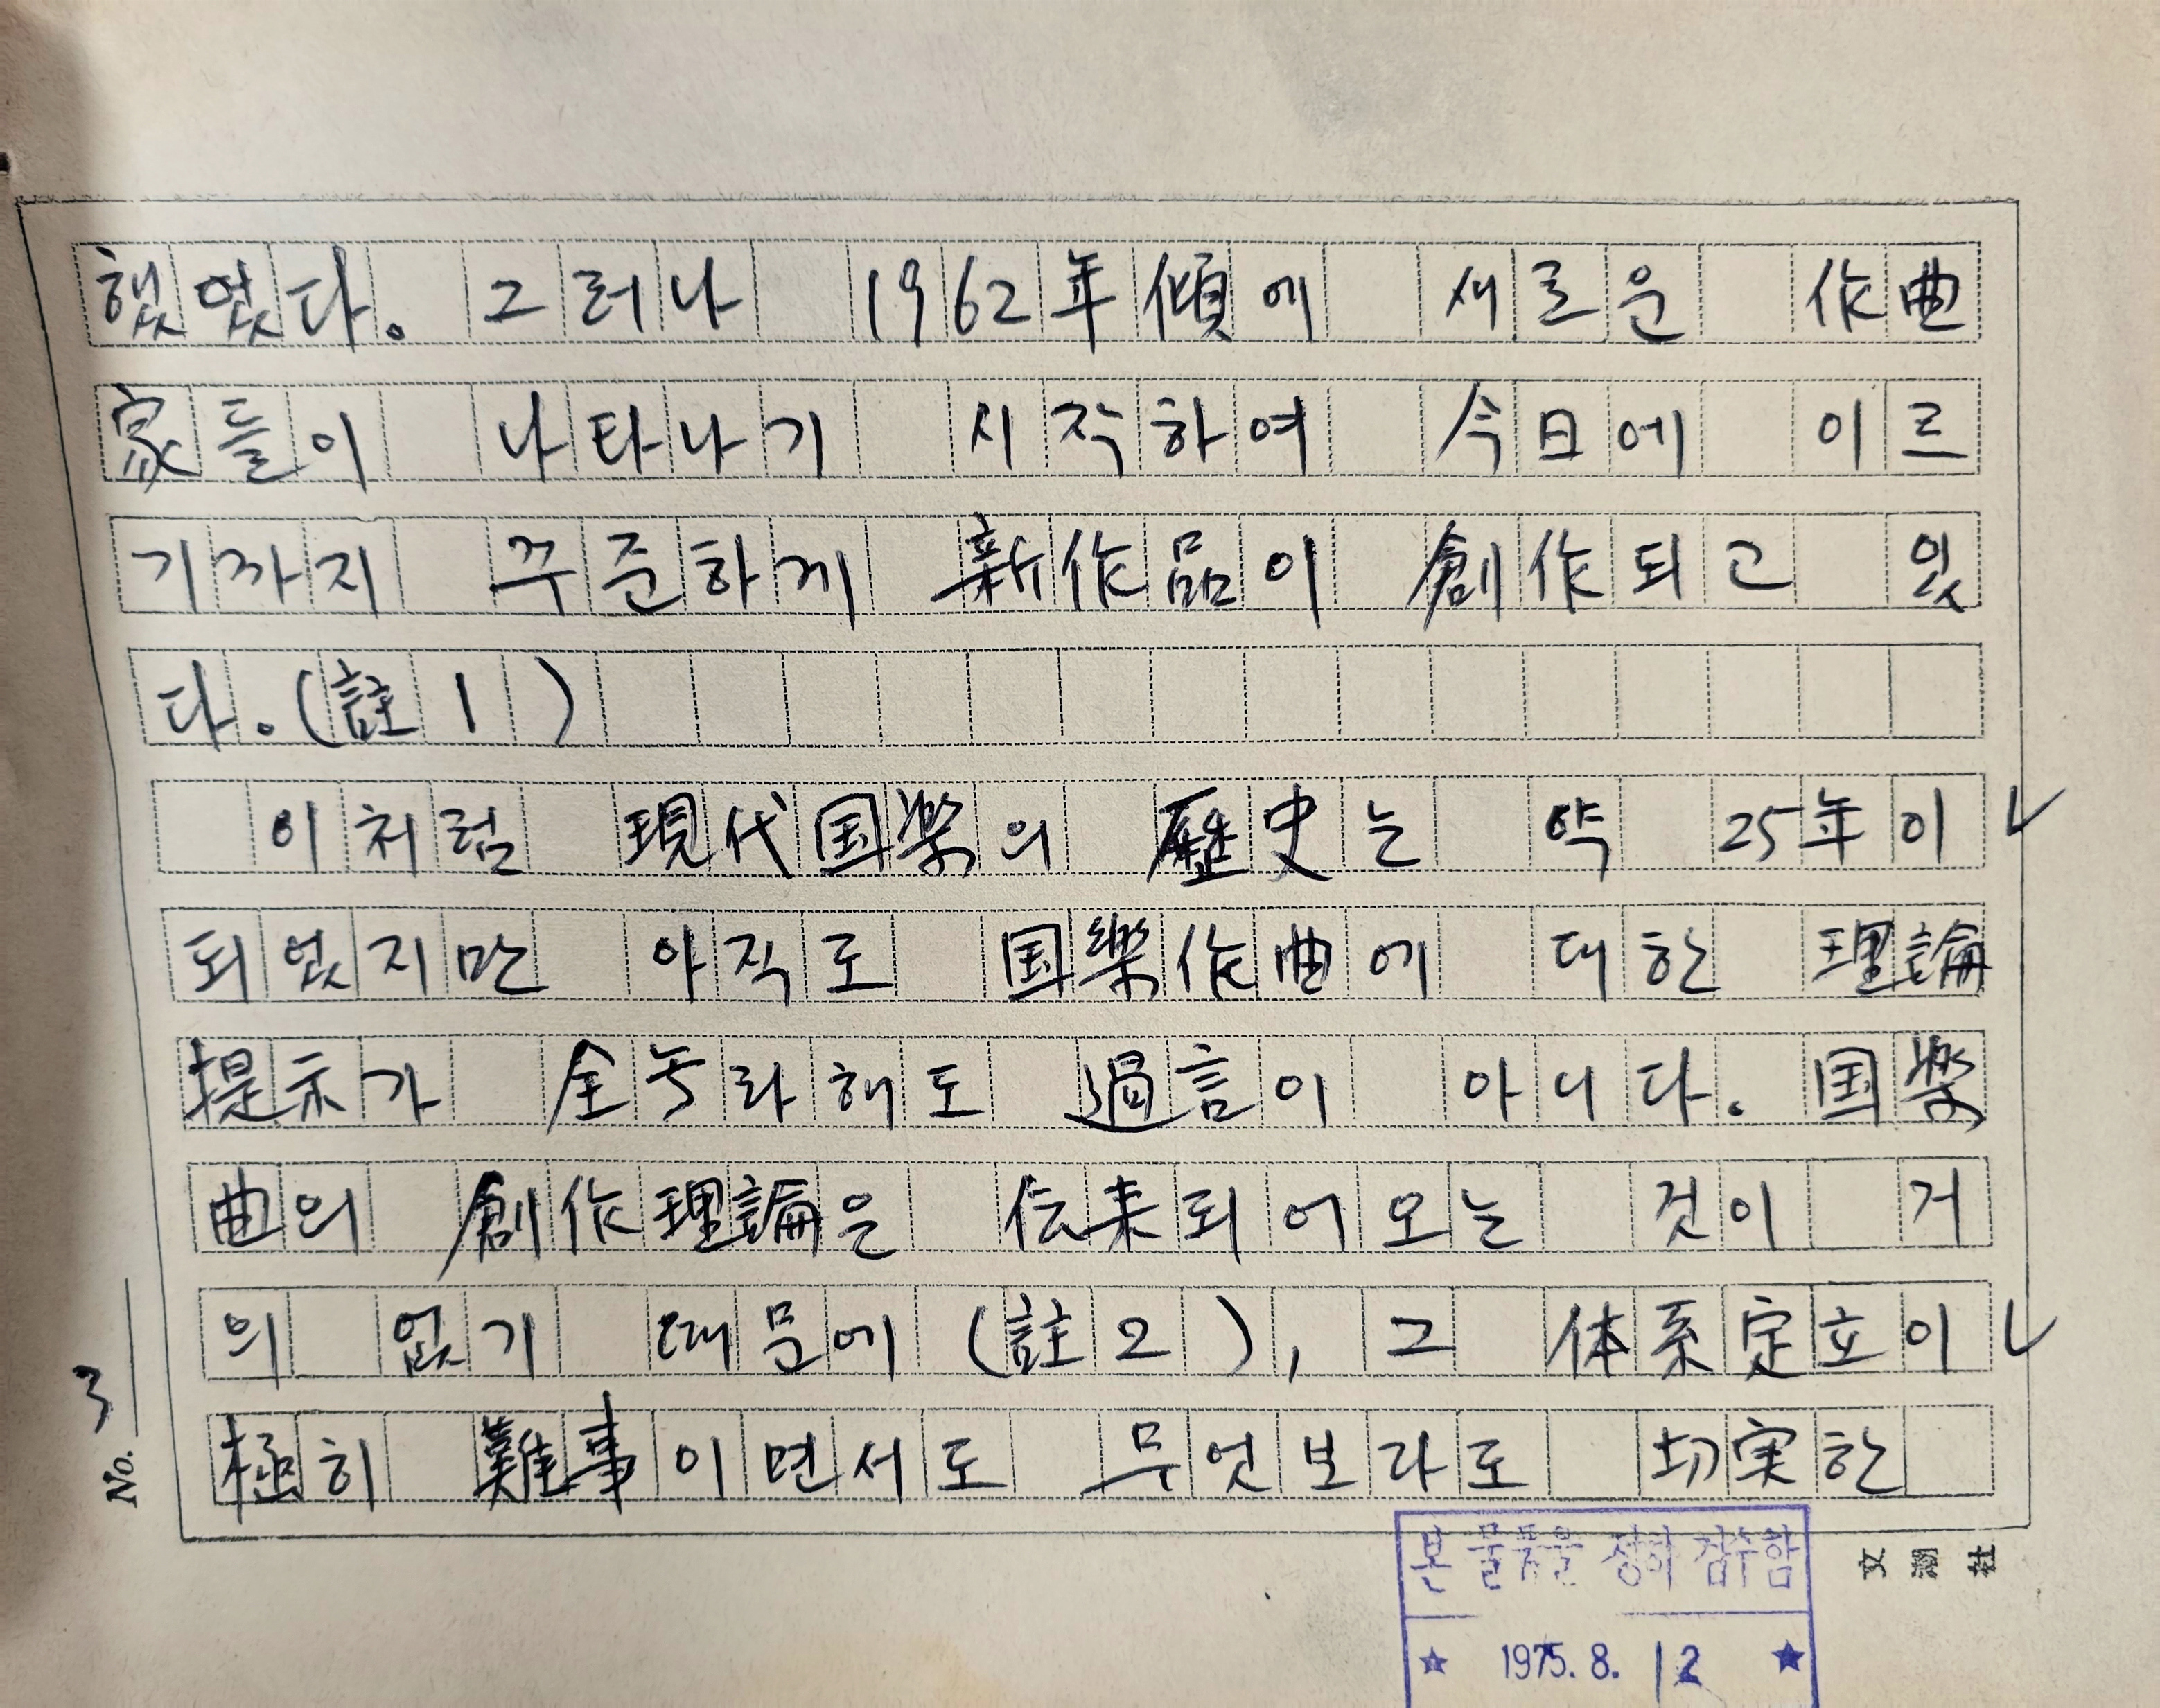 했었다. 그러나 1962年傾에 새로운 作曲
家들이 나타나기 시작하여 今日에 이르
기까지 꾸준하게 新作品이 創作되고 있
다. (註 1)
이처럼 現代国楽의 歷史는 약 25年이
되었지만 아직도 国樂作曲에 대한 理論
提示가 全무라해도 過言이 아니다. 国楽
曲의 創作理論은 伝来되어 오는 것이 거
의 없기 때문에 (註 2), 그 体系定立이
極히 難事이면서도 무엇보다도 切実한
No. 3
본 물품을 정히 검수함
★ 1975. 8. 12 ★